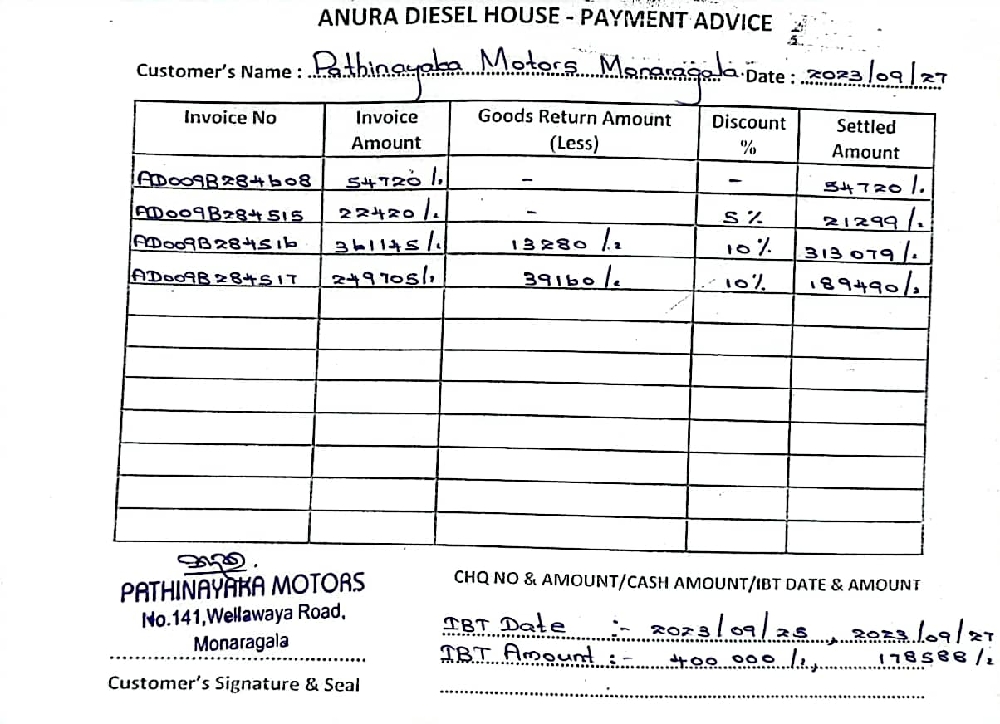 ANURA DIESEL HOUSE - PAYMENT ADVICE
Customer's Name : Pathinayaka Motors Monaragala. Date : 2023/09/27
Invoice No Invoice Amount Goods Return Amount (Less) Discount % Settled Amount
AD009B284608 54720/- - - 54720/-
AD009B284515 22420/- - 5% 21299/-
AD009B284516 361145/- 13280/- 10% 313079/-
AD009B284517 249705/- 39160/- 10% 189490/-
PATHINAYAKA MOTORS
No.141,Wellawaya Road,
Monaragala
Customer's Signature & Seal
CHQ NO & AMOUNT/CASH AMOUNT/IBT DATE & AMOUNT
IBT Date :- 2023/09/25, 2023/09/27
IBT Amount :- 400 000/-, 178588/-